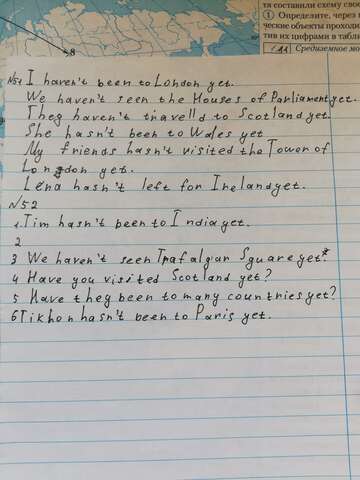 тя составили схему свое
① Определите, через
ческие объекты проходи
тив их цифрами в табли
Средиземное мо
8
№51 I haven't been to London yet.
We haven't seen the Houses of Parliament yet.
They haven't travelld to Scotland yet
She hasn't been to Wales yet
My friends hasn't visited the Tower of
London yet.
Lena hasn't left for Ireland yet.
№52
1. Tim hasn't been to India yet.
2
3 We haven't seen Trafalgar Sguare yet.
4 Have you visited Scotland yet?
5 Have they been to many countries yet?
6 Tikhon hasn't been to Paris yet.